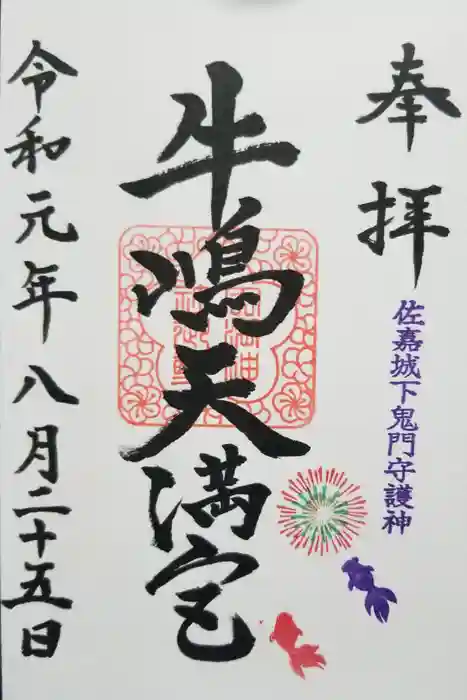 奉拝
佐嘉城下鬼門守護神
牛嶋天満宮
令和元年八月二十五日